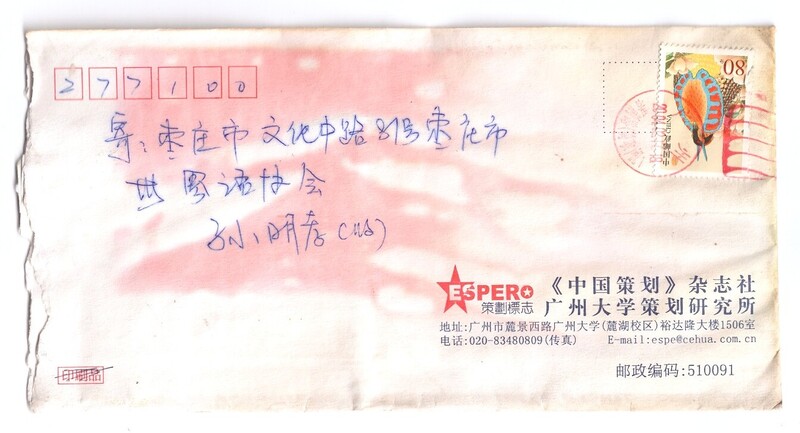 277100
寄:枣庄市文化中路81号枣庄市
世界语协会
孙明孝(收)
80
中国邮政 CHINA
ESPERO
策劃標志
《中国策划》杂志社
广州大学策划研究所
地址:广州市麓景西路广州大学(麓湖校区)裕达隆大楼1506室
电话:020-83480809(传真) E-mail:espe@cehua.com.cn
邮政编码:510091
印刷品